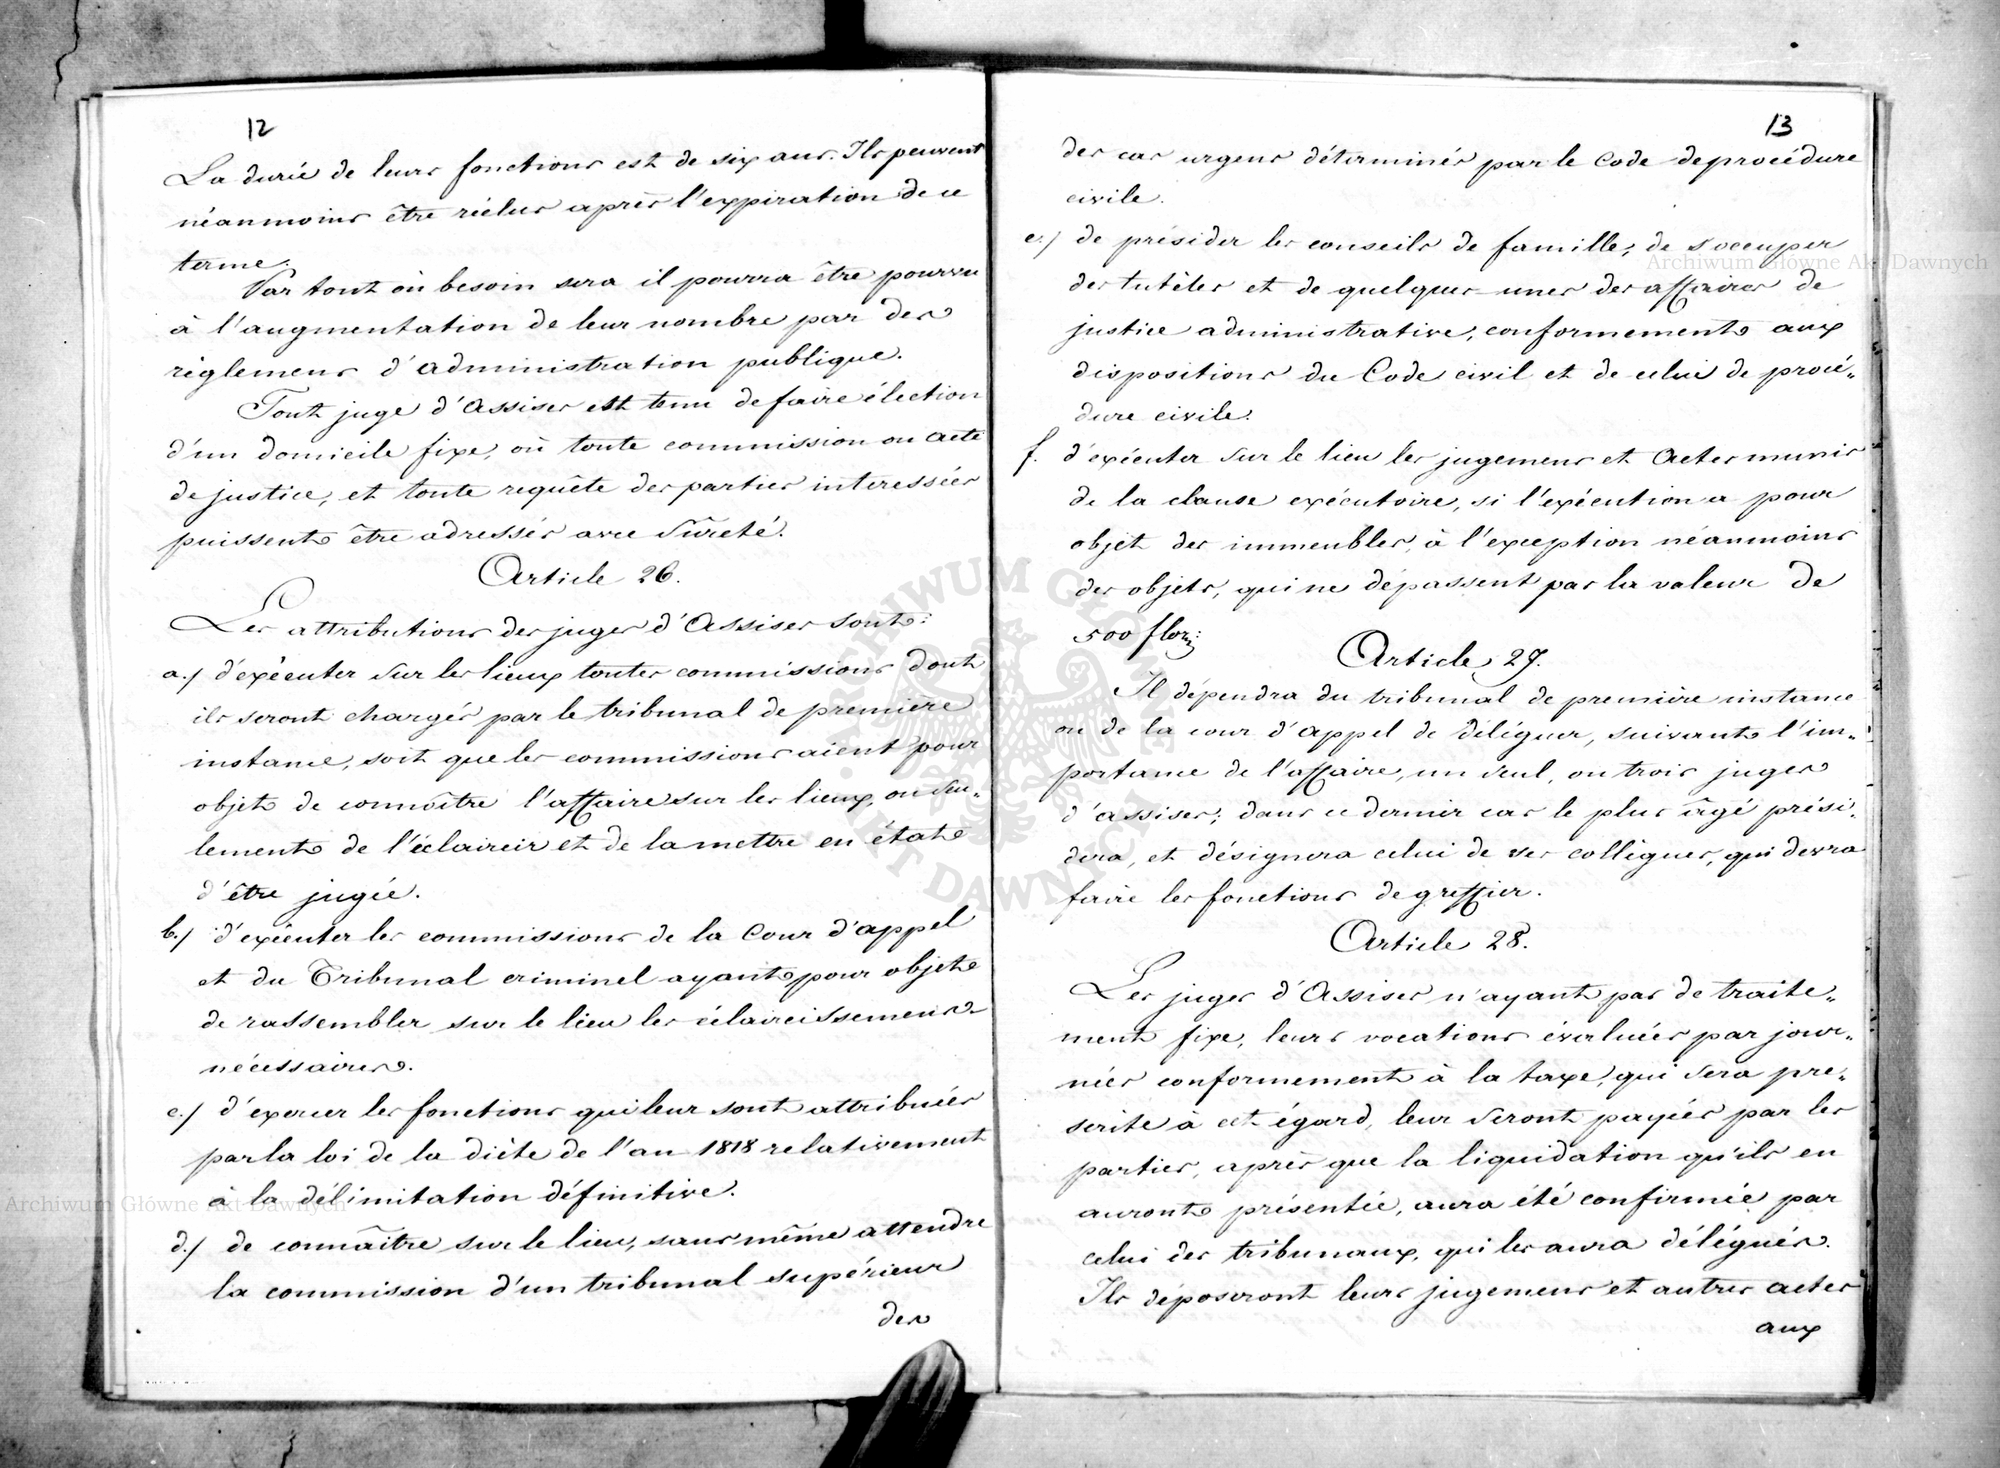 12
La durée de leurs fonctions est de six ans. Ils peuvent
néanmoins être réélus après l'expiration de ce
terme.
Par tout où besoin sera il pourra être pourvu
à l'augmentation de leur nombre par des
règlemens d'administration publique.
Tout juge d'Assises est tenu de faire élection
d'un domicile fixe, où toute commission ou acte
de justice, et toute requête des parties interessées
puissent être adressés avec sûreté.
Article 26.
Les attributions des juges d'Assises sont:
a./ d'exécuter sur les lieux toutes commissions dont
ils seront chargés par le tribunal de première
instance, soit que les commissions aient pour
objet de connoître l'affaire sur les lieux, ou seu„
lement de l'éclaircir et de la mettre en état
d'être jugée.
b./ d'exécuter les commissions de la Cour d'appel
et du Tribunal criminel ayant pour objet
de rassembler sur le lieu les éclaircissemens
nécessaires.
c./ d'exercer les fonctions qui leur sont attribuées
par la loi de la diète de l'an 1818 relativement
à la délimitation définitive.
d./ de connaître sur le lieu, sans même attendre
la commission d'un tribunal supérieur
des
13
des cas urgens déterminés par le Code de procédure
civile.
e./ de présider les conseils de famille, de s'occuper
des tutèles et de quelques-unes des affaires de
justice administrative, conformement aux
dispositions du Code civil et de celui de procé„
dure civile.
f. d'exécuter sur le lieu les jugemens et Actes munis
de la clause exécutoire, si l'exécution a pour
objet des immeubles, à l'exception néanmoins
des objets, qui ne dépassent pas la valeur de
500 flor:
Article 27.
Il dépendra du tribunal de première instance
ou de la cour d'appel de déléguer, suivant l'im„
portance de l'affaire, un seul, ou trois juges
d'assises; dans ce dernier cas le plus âgé prési„
dera, et désignera celui de ses collègues, qui devra
faire les fonctions de greffier.
Article 28.
Les juges d'Assises n'ayant pas de traite„
ment fixe, leurs vocations évaluées par jour„
nées conformement à la taxe, qui sera pre„
scrite à cet égard, leur seront payées par les
parties, après que la liquidation qu'ils en
auront présentée, aura été confirmée par
celui des tribunaux, qui les aura délégués.
Ils déposeront leurs jugemens et autres actes
aux
Archiwum Główne Akt Dawnych
Archiwum Główne Akt Dawnych
ARCHIWUM GŁÓWNE AKT DAWNYCH